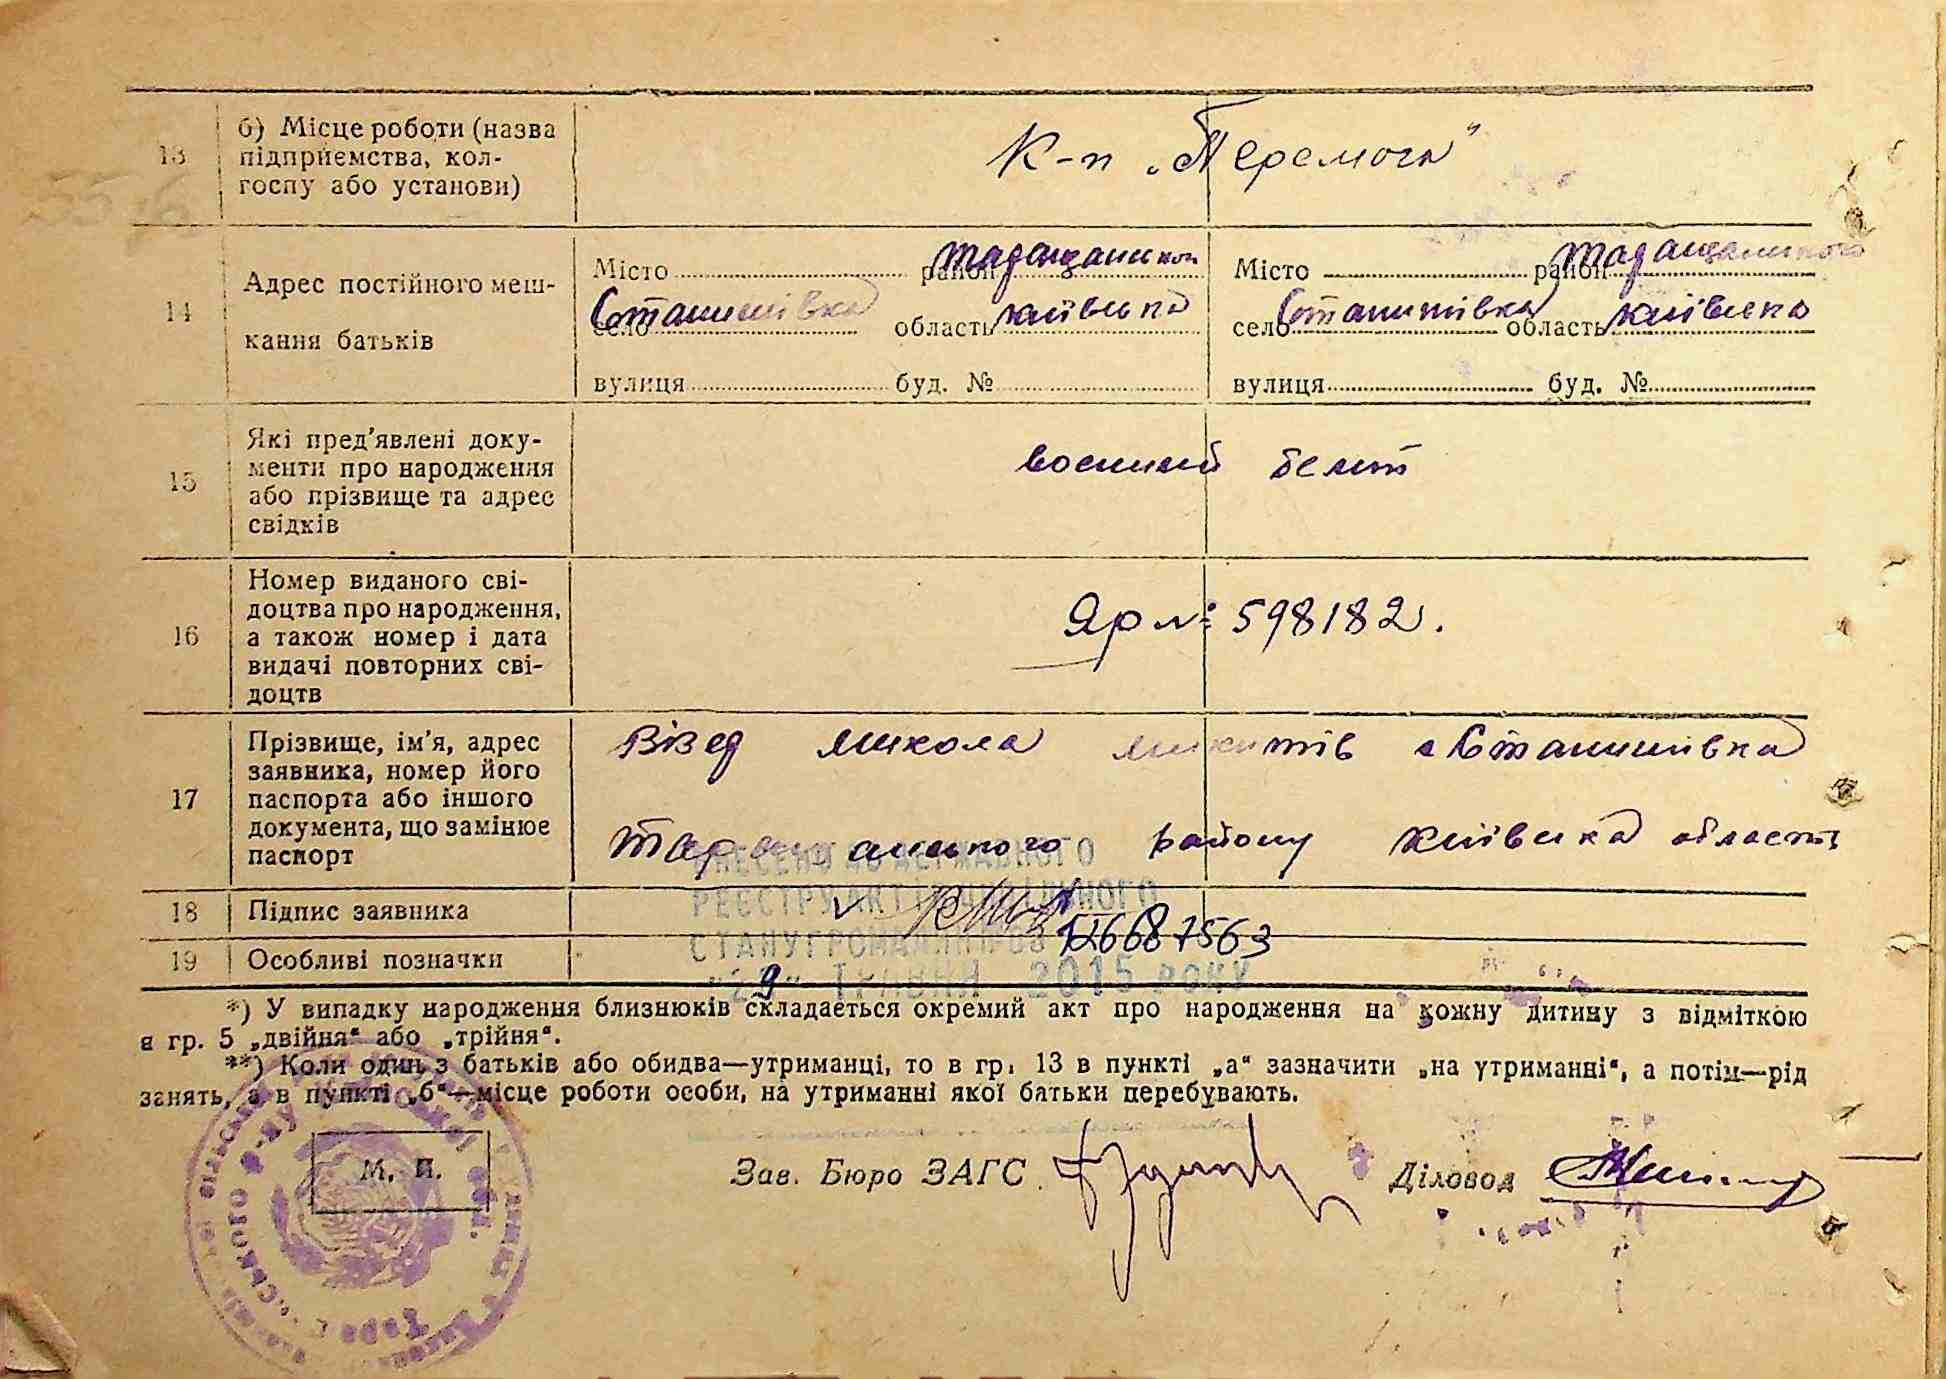 13
б) Місце роботи (назва
підприємства, кол-
госпу або установи)
К-п „Перемога"
14
Адрес постійного меш-
кання батьків
Місто район Таращанський
село Станишівка область Київська
вулиця буд. №
Місто район Таращанського
село Станишівка область Київська
вулиця буд. №
15
Які пред'явлені доку-
менти про народження
або прізвище та адрес
свідків
воєнний белет
16
Номер виданого сві-
доцтва про народження,
а також номер і дата
видачі повторних сві-
доцтв
Яр № 598182.
17
Прізвище, ім'я, адрес
заявника, номер його
паспорта або іншого
документа, що замінює
паспорт
Микола Микитів с Станишівка
Таращанського району Київська області
18
Підпис заявника
19
Особливі позначки
ВНЕСЕНО ДО ДЕРЖАВНОГО
РЕЄСТРУ АКТІВ ЦИВІЛЬНОГО
СТАНУ ГРОМАДЯН ПІД № 126687563
ТРАВНЯ 2015 РОКУ
*) У випадку народження близнюків складається окремий акт про народження на кожну дитину з відміткою
в гр. 5 „двійня" або „трійня".
**) Коли один з батьків або обидва—утриманці, то в гр. 13 в пункті „а" зазначити „на утриманні", а потім—рід
занять, а в пункті „б"—місце роботи особи, на утриманні якої батьки перебувають.
М. П.
Зав. Бюро ЗАГС
Діловод